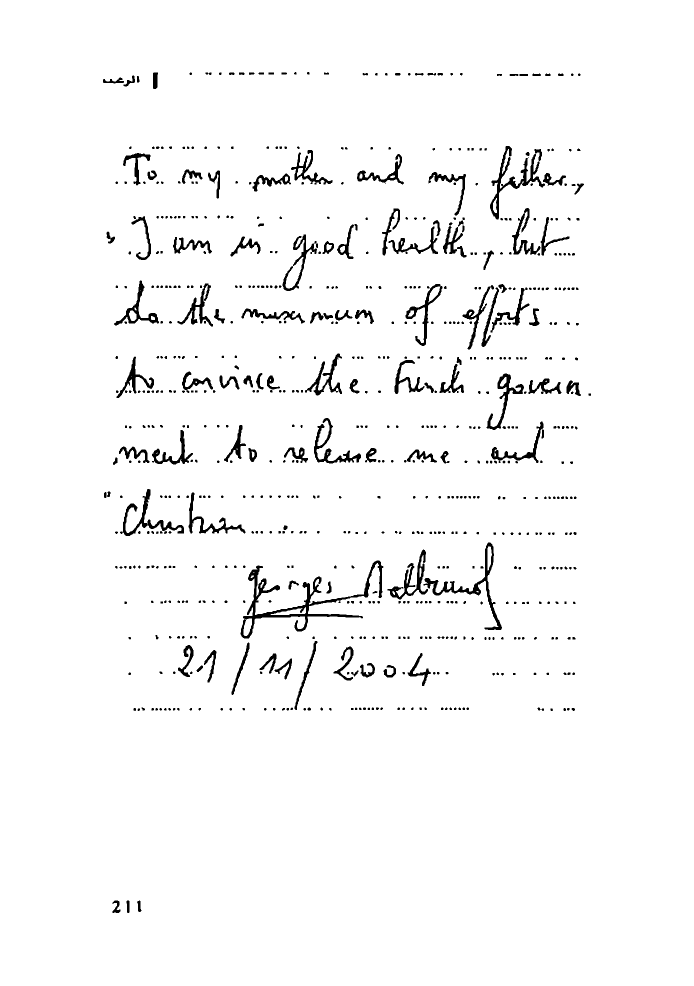 To my mother and my father,
I am in good health, but
do the maximum of efforts
to convince the French govern
ment to release me and
Christian.
georges Malbrunot
21/11/2004
211